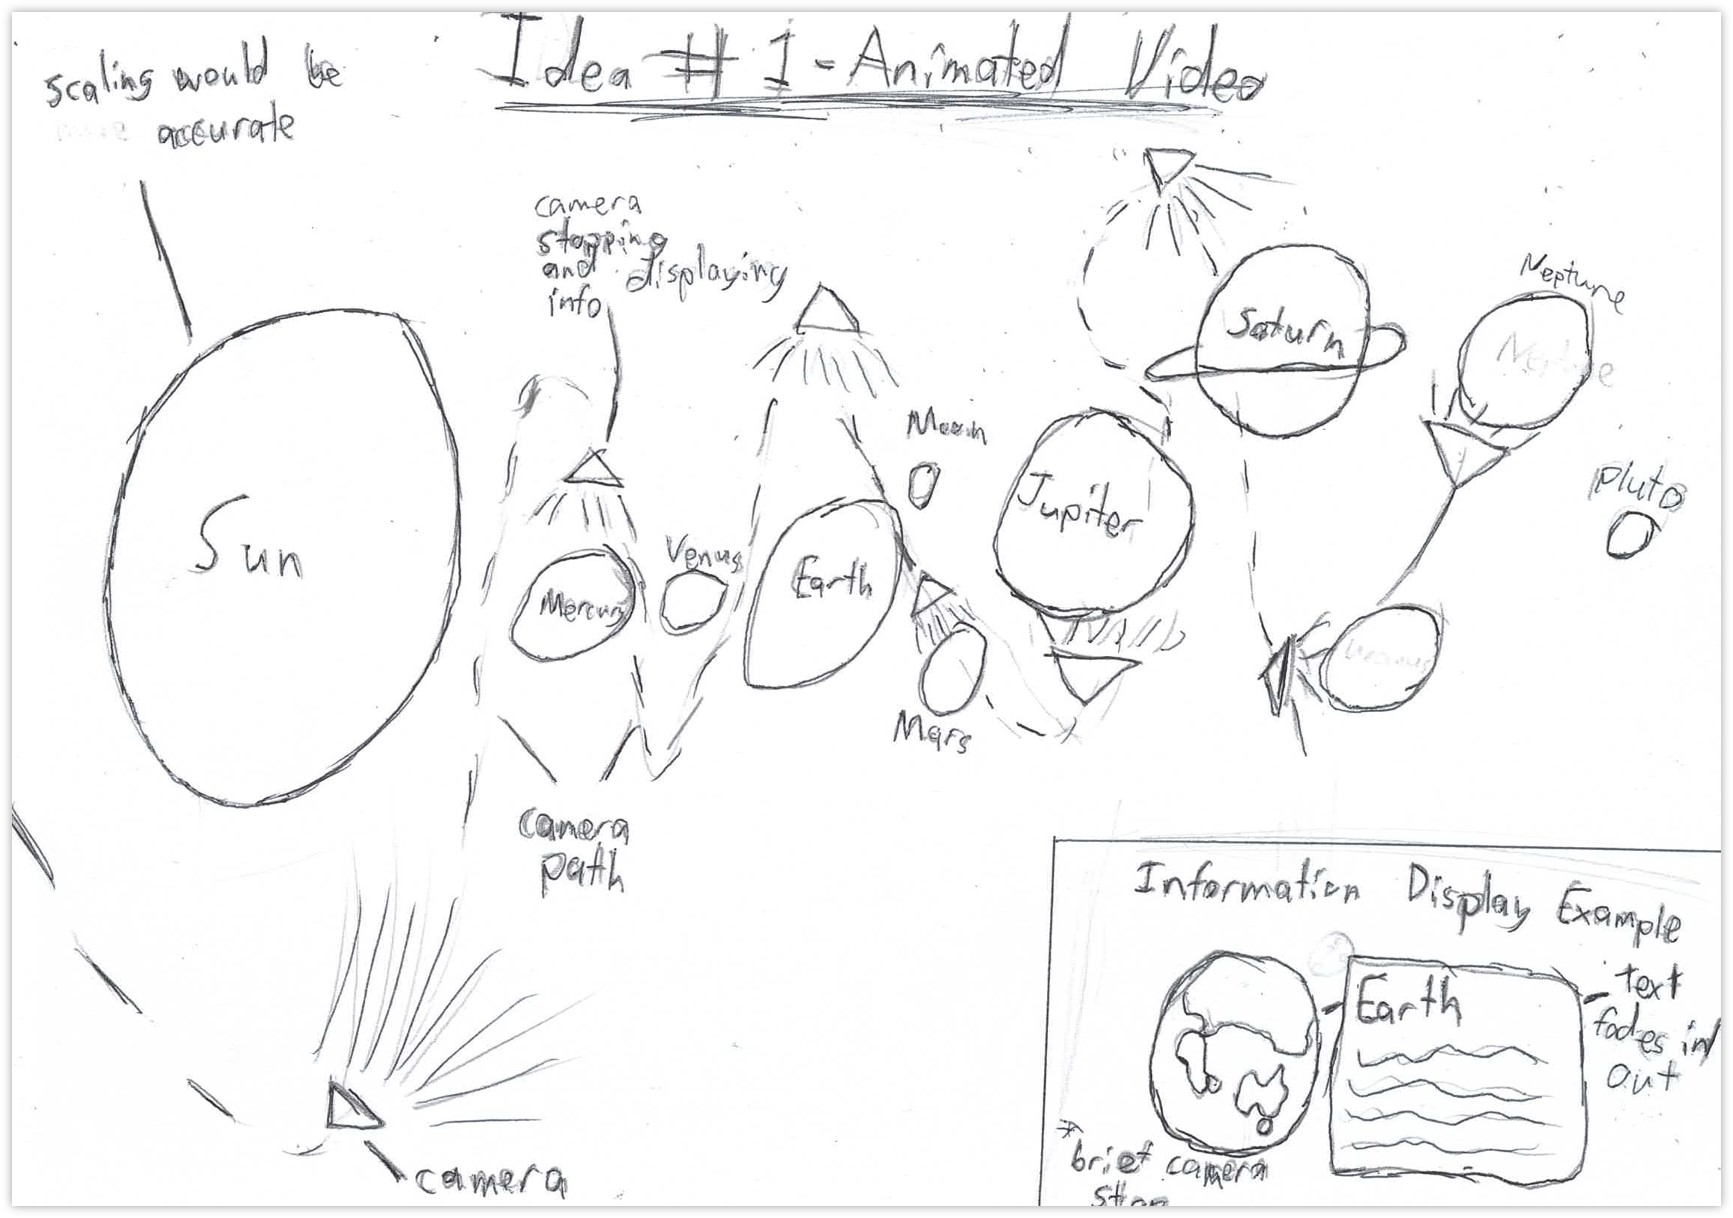 Idea # 1 - Animated Video
scaling would be
more accurate
camera
stopping
and displaying
info
Sun
Mercury
Venus
Earth
Moon
Mars
Jupiter
Saturn
Neptune
Neptune
Uranus
Pluto
camera
path
camera
Information Display Example
Earth
text
fades in/
out
* brief camera
stop